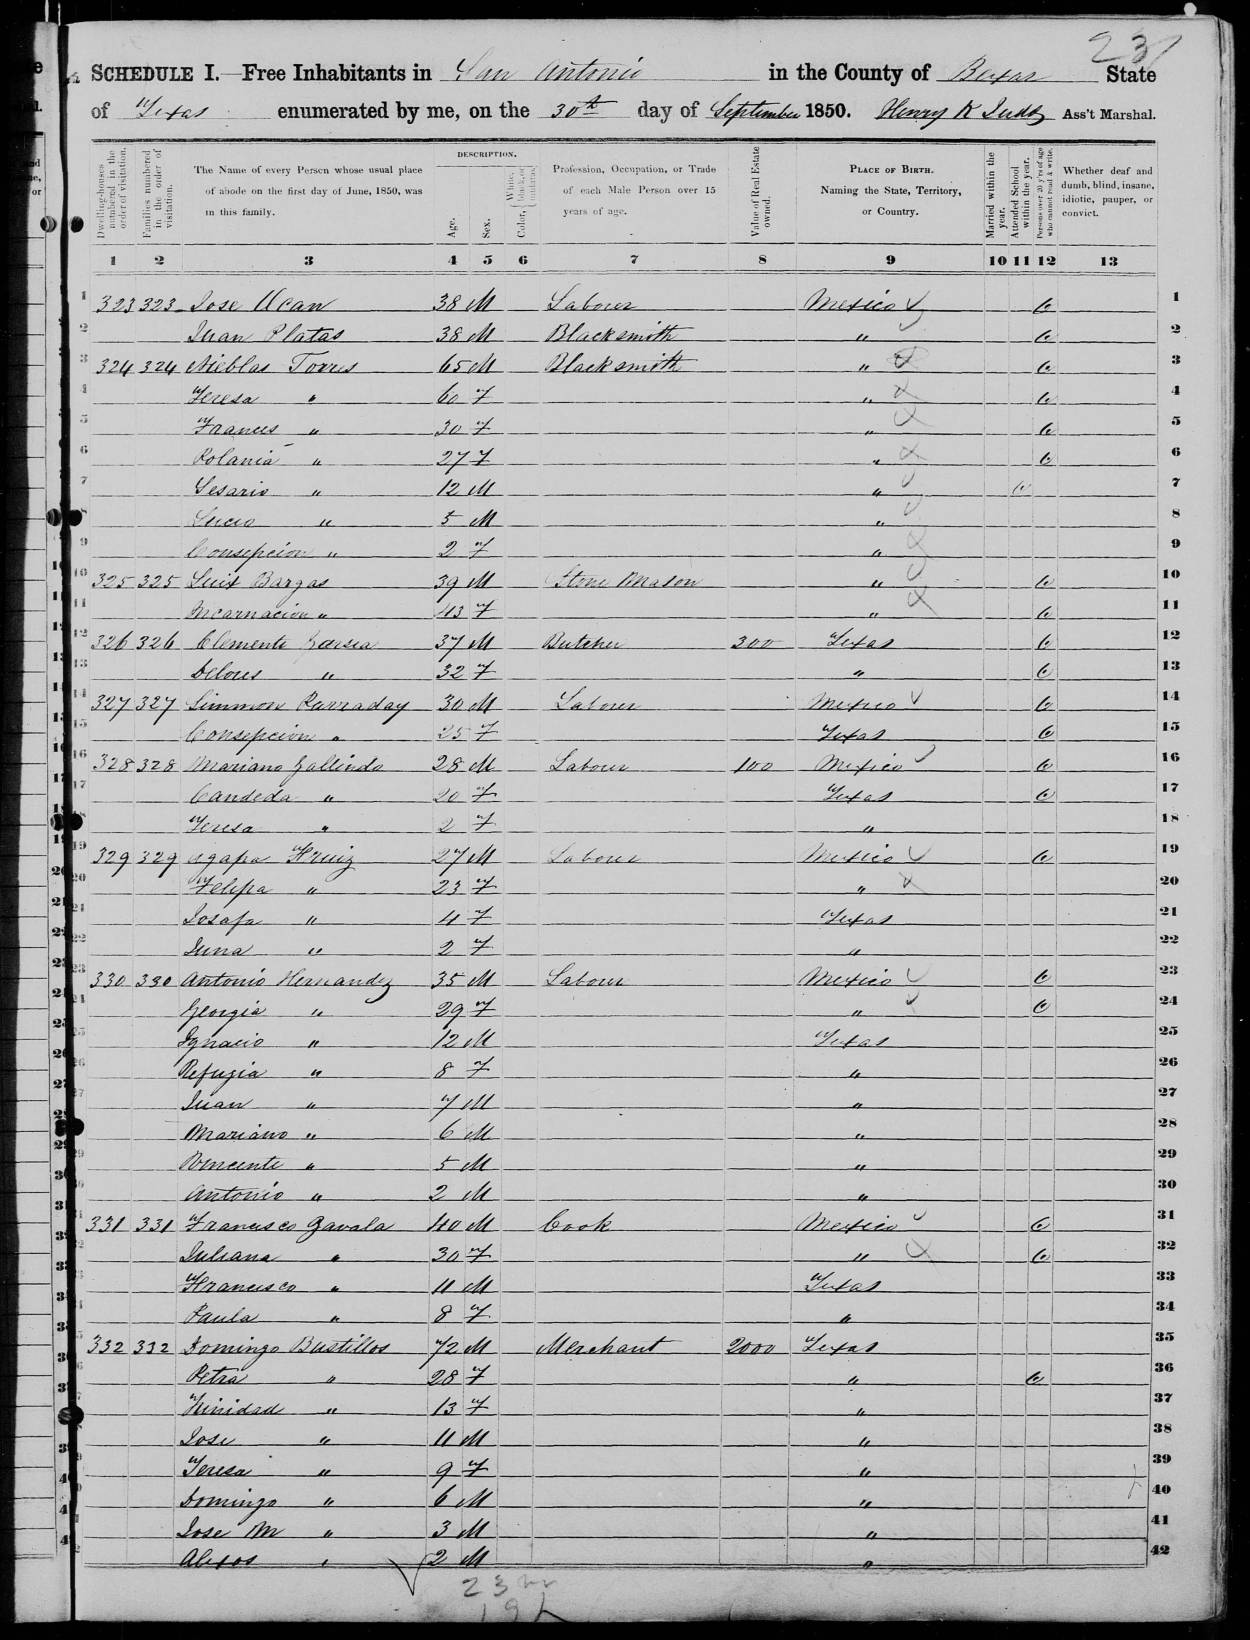 237
SCHEDULE I.—Free Inhabitants in San Antonio in the County of Bexar State
of Texas enumerated by me, on the 30th day of September 1850. Henry K Judd Ass't Marshal.
Dwelling-houses numbered in the order of visitation.
Families numbered in the order of visitation.
The Name of every Person whose usual place of abode on the first day of June, 1850, was in this family.
DESCRIPTION.
Age.
Sex.
Color, White, black, or mulatto.
Profession, Occupation, or Trade of each Male Person over 15 years of age.
Value of Real Estate owned.
PLACE OF BIRTH. Naming the State, Territory, or Country.
Married within the year.
Attended School within the year.
Persons over 20 y'rs of age who cannot read & write.
Whether deaf and dumb, blind, insane, idiotic, pauper, or convict.
1 2 3 4 5 6 7 8 9 10 11 12 13
1 323 323 Jose Ucan 38 M Laborer Mexico 1
2 Juan Platas 38 M Blacksmith " 2
3 324 324 Nieblas Torres 65 M Blacksmith " 3
4 Teresa " 60 F " 4
5 Frances " 30 F " 5
6 Rolania " 27 F " 6
7 Sesario " 12 M " 7
8 Lucio " 5 M " 8
9 Consepcion " 2 F " 9
10 325 325 Luis Bargas 39 M Stone Mason " 10
11 Incarnacion " 43 F " 11
12 326 326 Clemente Garsia 37 M Butcher 300 Texas 12
13 Delores " 32 F " 13
14 327 327 Simmon Parraday 30 M Laborer Mexico 14
15 Consepcion " 25 F Texas 15
16 328 328 Mariano Gallindo 28 M Laborer 100 Mexico 16
17 Candeda " 20 F Texas 17
18 Teresa " 2 F " 18
19 329 329 Agapa Hruiz 27 M Laborer Mexico 19
20 Felepa " 23 F " 20
21 Josafa " 4 F Texas 21
22 Juna " 2 F " 22
23 330 330 Antonio Hernandez 35 M Laborer Mexico 23
24 Georgia " 29 F " 24
25 Ignacio " 12 M Texas 25
26 Refugia " 8 F " 26
27 Juan " 7 M " 27
28 Mariano " 6 M " 28
29 Bencente " 5 M " 29
30 Antonio " 2 M " 30
31 331 331 Francisco Zavala 40 M Cook Mexico 31
32 Juliana " 30 F " 32
33 Francisco " 11 M Texas 33
34 Paula " 8 F " 34
35 332 332 Domingo Bustillos 72 M Merchant 2000 Texas 35
36 Petra " 28 F " 36
37 Trinidad " 13 F " 37
38 Jose " 11 M " 38
39 Teresa " 9 F " 39
40 Domingo " 6 M " 40
41 Jose M " 3 M " 41
42 Alexos " 2 M " 42
23
19